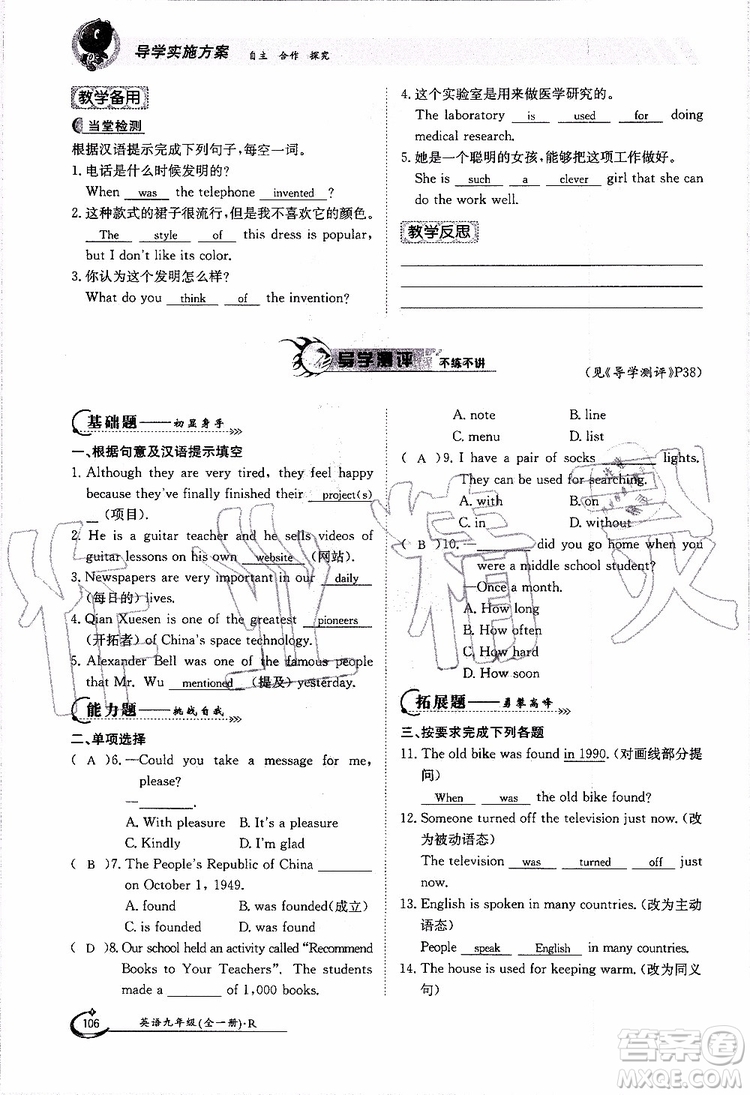 导学实施方案 自主 合作 探究
教学备用
当堂检测
根据汉语提示完成下列句子，每空一词。
1. 电话是什么时候发明的?
When was the telephone invented ?
2. 这种款式的裙子很流行，但是我不喜欢它的颜色。
The style of this dress is popular,
but I don't like its color.
3. 你认为这个发明怎么样?
What do you think of the invention?
4. 这个实验室是用来做医学研究的。
The laboratory is used for doing
medical research.
5. 她是一个聪明的女孩，能够把这项工作做好。
She is such a clever girl that she can
do the work well.
教学反思
导学测评 不练不讲
(见《导学测评》P38)
基础题——初显身手
一、根据句意及汉语提示填空
1. Although they are very tired, they feel happy
because they've finally finished their project(s)
(项目).
2. He is a guitar teacher and he sells videos of
guitar lessons on his own website (网站).
3. Newspapers are very important in our daily
(每日的) lives.
4. Qian Xuesen is one of the greatest pioneers
(开拓者) of China's space technology.
5. Alexander Bell was one of the famous people
that Mr. Wu mentioned (提及) yesterday.
能力题——挑战自我
二、单项选择
( A )6. —Could you take a message for me,
please?
—______.
A. With pleasure B. It's a pleasure
C. Kindly D. I'm glad
( B )7. The People's Republic of China ______
on October 1, 1949.
A. found B. was founded(成立)
C. is founded D. was found
( D )8. Our school held an activity called "Recommend
Books to Your Teachers". The students
made a ______ of 1,000 books.
A. note B. line
C. menu D. list
( A )9. I have a pair of socks ______ lights.
They can be used for searching.
A. with B. on
C. in D. without
( B )10. —______ did you go home when you
were a middle school student?
—Once a month.
A. How long
B. How often
C. How hard
D. How soon
拓展题——勇攀高峰
三、按要求完成下列各题
11. The old bike was found in 1990. (对画线部分提
问)
When was the old bike found?
12. Someone turned off the television just now. (改
为被动语态)
The television was turned off just
now.
13. English is spoken in many countries. (改为主动
语态)
People speak English in many countries.
14. The house is used for keeping warm. (改为同义
句)
106 英语九年级(全一册)·R
作业精灵
答案圈
MXQE.COM